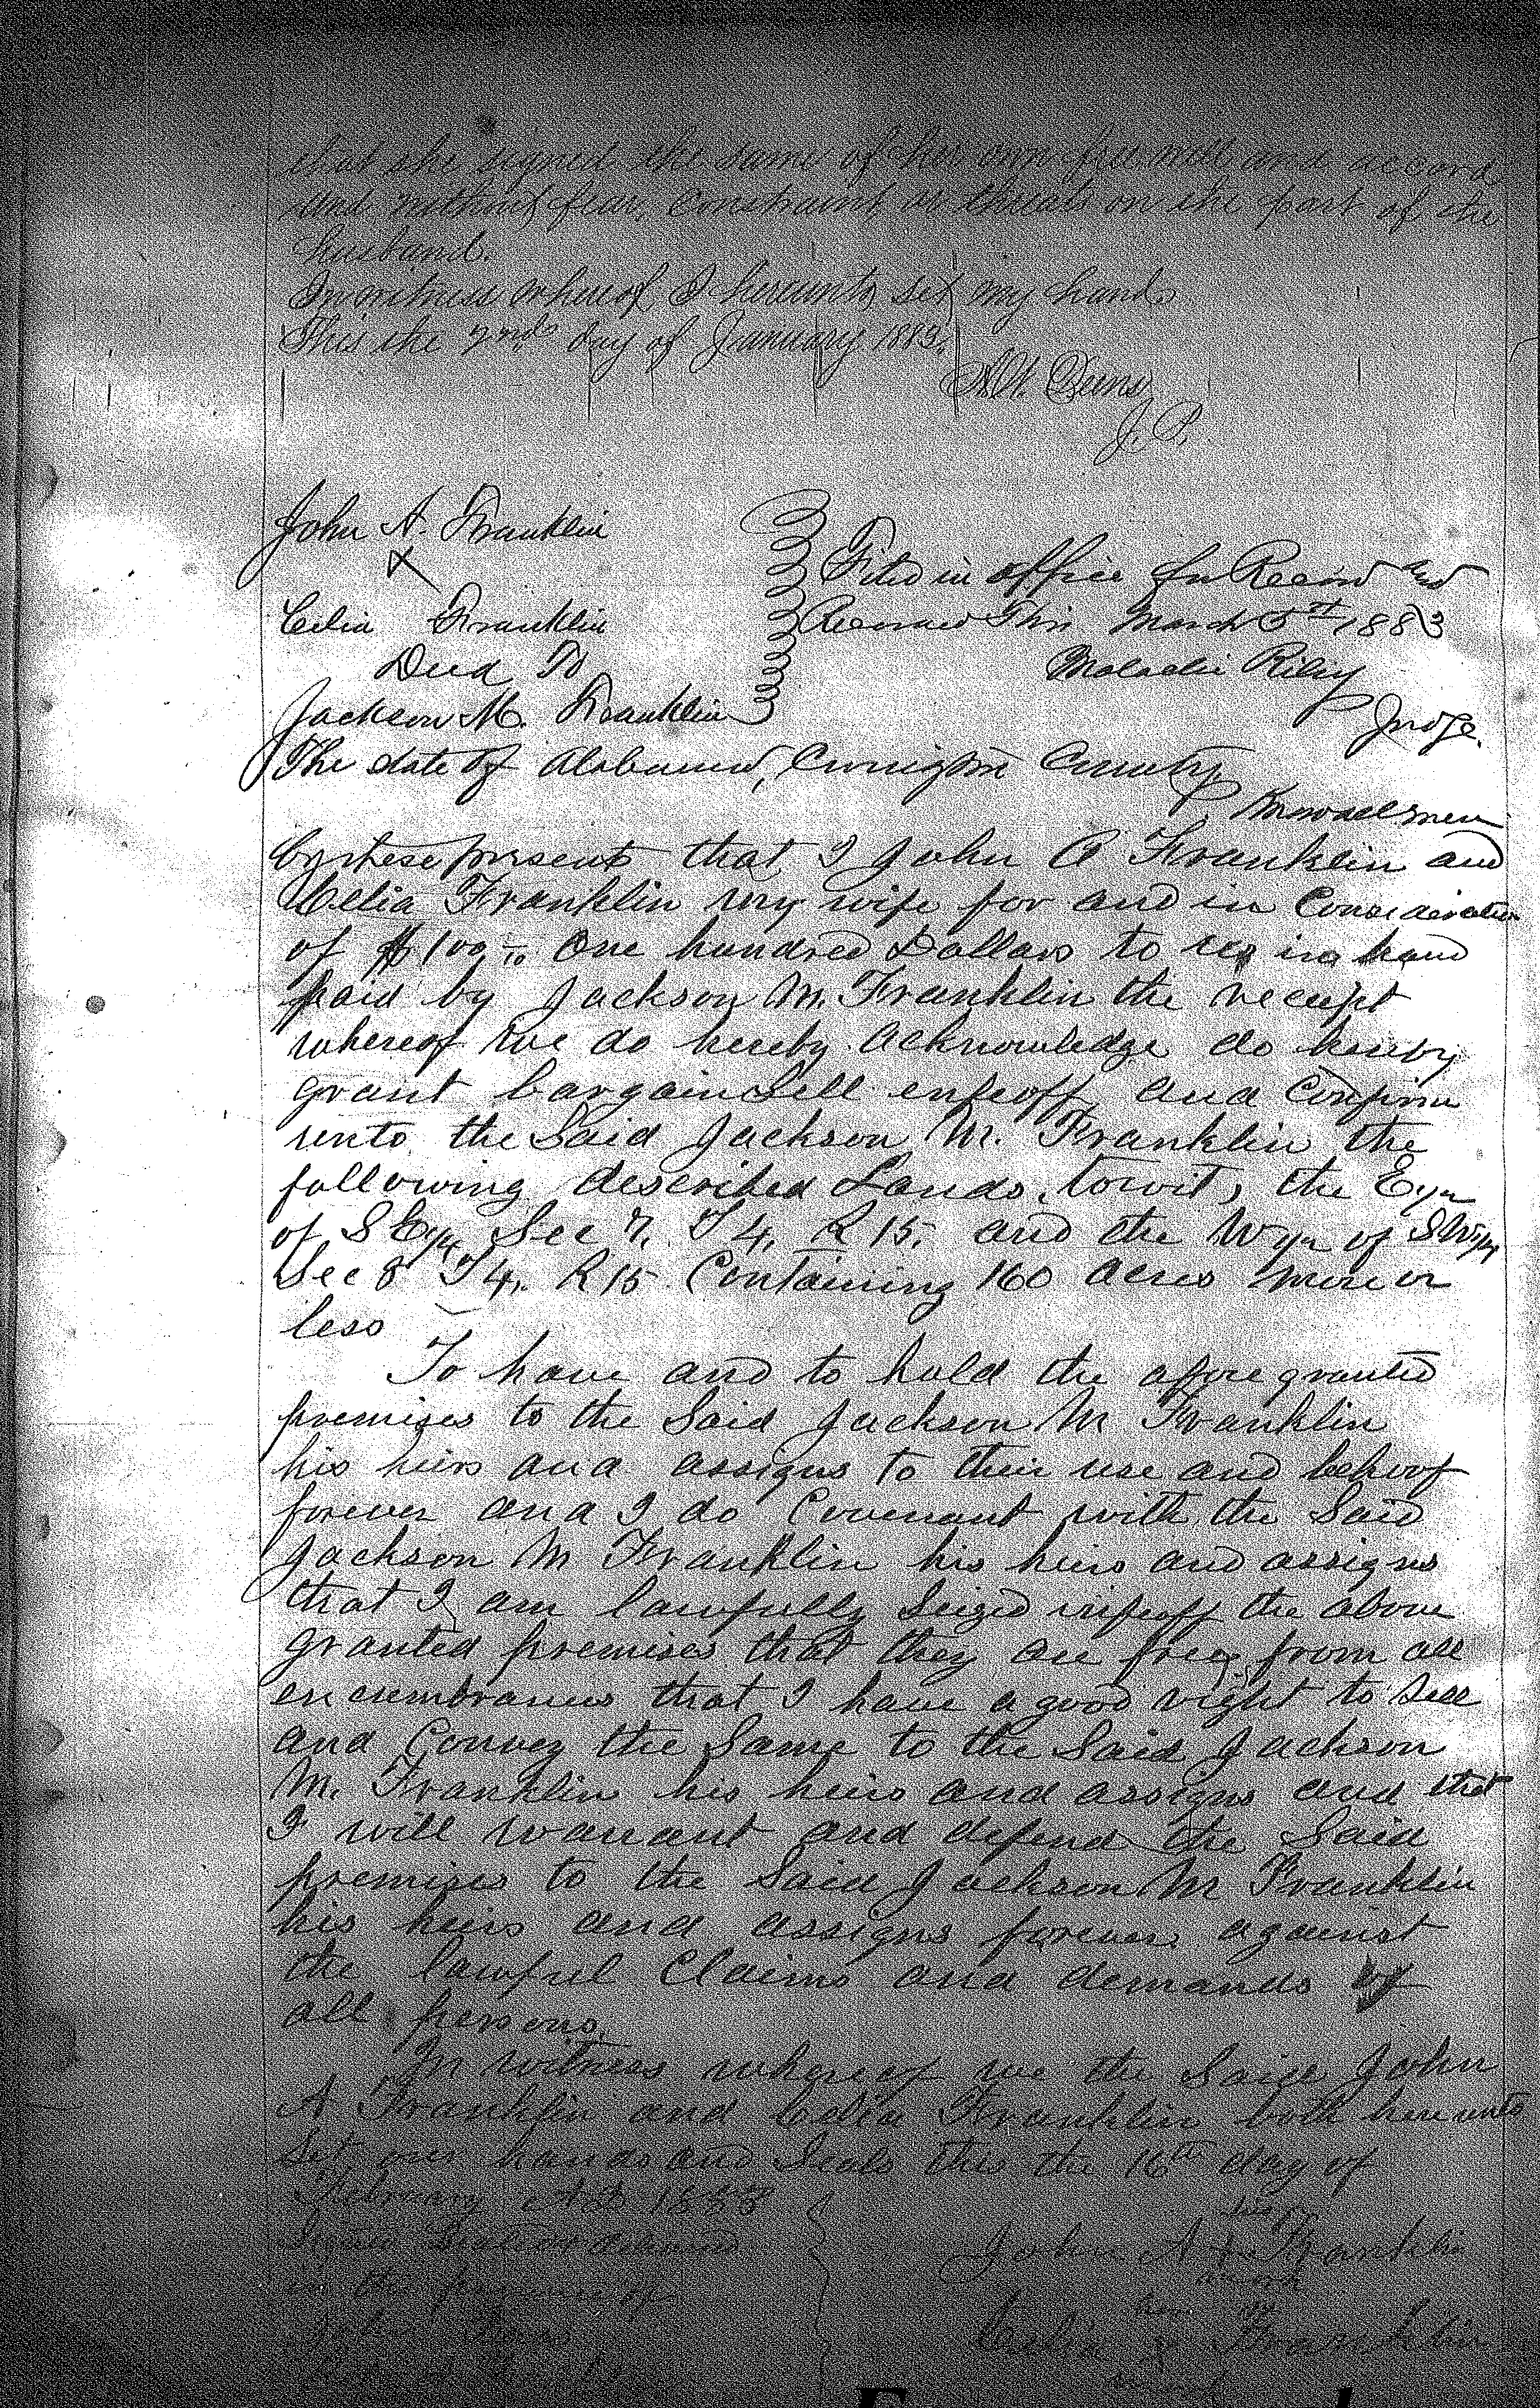 that she signed the same of her own free will and accord
and without fear, Constraint or threats on the part of the
husband.
In witness whereof I hereunto set my hand
This the 2nd day of January 1883.
J. P.
John A. Franklin
&
Celia Franklin
Deed To
Jackson M. Franklin
Filed in office for Record and
Recorded This March 5th 1883
Malachi Riley
Judge.
The state of Alabama, Covington County
Know all men
by these presents that I John A Franklin and
Celia Franklin my wife for and in Consideration
of $100 One hundred Dollars to us in hand
paid by Jackson M. Franklin the receipt
whereof we do hereby acknowledge do hereby
grant bargain Sell enfeoff and Confirm
unto the Said Jackson M. Franklin the
following described Lands, towit, the E 1/2
of SE 1/4 Sec 7. T 4. R 15. and the W 1/2 of SW 1/4
Sec 8 T 4. R 15 Containing 160 acres more or
less
To have and to hold the afore granted
premises to the Said Jackson M Franklin
his heirs and assigns to their use and behoof
forever and I do Covenant with the Said
Jackson M Franklin his heirs and assigns
that I am lawfully Seized in feoff the above
granted premises that they are free from all
encumbrances that I have a good right to Sell
and Convey the Same to the Said Jackson
M. Franklin his heirs and assigns and that
I will warrant and defend the Said
premises to the Said Jackson M Franklin
his heirs and assigns forever against
the lawful Claims and demands of
all persons.
In witness whereof we the Said John
A Franklin and Celia Franklin both hereunto
Set our hands and Seals this the 16th day of
February AD 1883
Signed Sealed and delivered
in the presence of
his
John A + Franklin
mark
her
Celia x Franklin